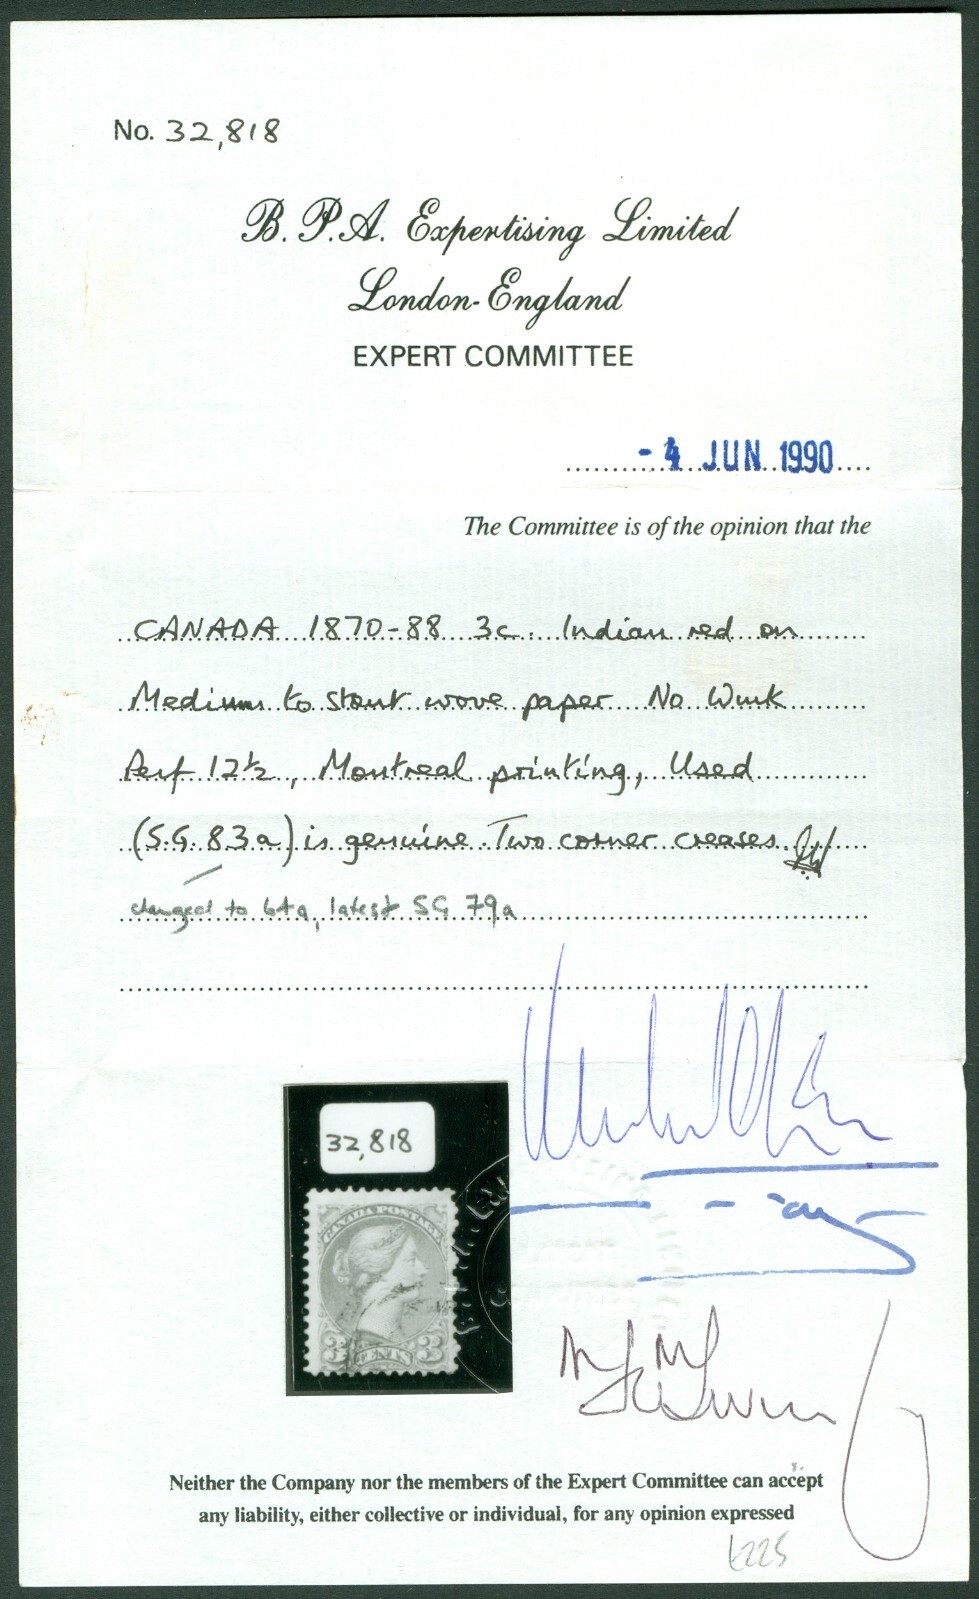 No. 32,818
B. P. A. Expertising Limited
London-England
EXPERT COMMITTEE
- 4 JUN 1990
The Committee is of the opinion that the
CANADA 1870-88 3c. Indian red on
Medium to stout wove paper No Wmk
Perf 12½, Montreal printing, Used
(S.G. 83a) is genuine. Two corner creases.
changed to 64a, latest SG 79a
32,818
CANADA POSTAGE
3 CENTS 3
Neither the Company nor the members of the Expert Committee can accept
any liability, either collective or individual, for any opinion expressed
£225